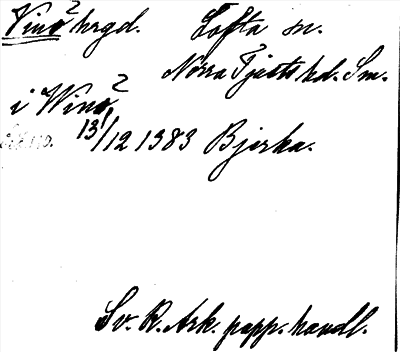 Vinö hrgd. Lofta sn.
Norra Tjusts hd. Sm.
i Winö,
13/12 1383 Bjerka.
Sv. R. Ark. papp. handl.